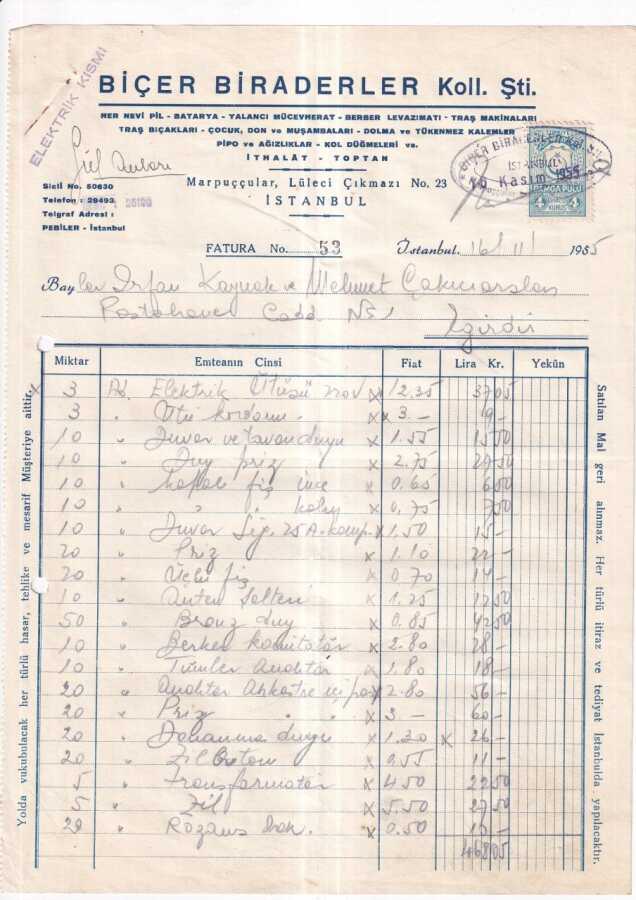 ELEKTRİK KISMI
BİÇER BİRADERLER Koll. Şti.
HER NEVİ PİL - BATARYA - YALANCI MÜCEVHERAT - BERBER LEVAZIMATI - TRAŞ MAKİNALARI
TRAŞ BIÇAKLARI - ÇOCUK, DON ve MUŞAMBALARI - DOLMA ve TÜKENMEZ KALEMLER
PİPO ve AĞIZLIKLAR - KOL DÜĞMELERİ vs.
İTHALÂT - TOPTAN
BİÇER BİRADERLER
İSTANBUL
16 Kasım 1955
DAMGA PULU
4 4
Sicil No. 50630
Telefon : 29493
Telgraf Adresi :
PEBİLER - İstanbul
Marpuççular, Lüleci Çıkmazı No. 23
İSTANBUL
FATURA No. 53 İstanbul. 16/11/1955
Baylar İrfan Kaynak ve Mehmet Çakıcıarslan
Postahane Cadd. No 1
Eğirdir
Miktar Emteanın Cinsi Fiat Lira Kr. Yekûn
3 Ad. Elektrik Ütüsü x 12.35 3705
3 " Ütü kordonu x 3.- 9-
10 " Duvar ve tavan duyu x 1.55 1550
10 " Duy priz x 2.75 2750
10 " fiş ince x 0.65 650
10 " " " x 0.75 750
10 " Duvar Sig. 25 A. x 1.50 15-
20 " Priz x 1.10 22-
20 " Üçlü fiş x 0.70 14-
10 " Anten Şalteri x 1.25 1250
50 " Bronz duy x 0.85 4250
10 " Berker komitatör x 2.80 28-
10 " Tümler Anahtar x 1.80 18-
20 " Anahtar x 2.80 56-
20 " Priz " " x 3- 60-
20 " duyu x 1.30 x 26-
20 " Zil Butonu x 0.55 11-
5 " Transformatör x 4.50 2250
5 " Zil x 5.50 2750
" x 0.50
46805
Yolda vukubulacak her türlü hasar, tehlike ve mesarif Müşteriye aittir.
Satılan Mal geri alınmaz. Her türlü itiraz ve tediyat İstanbulda yapılacaktır.